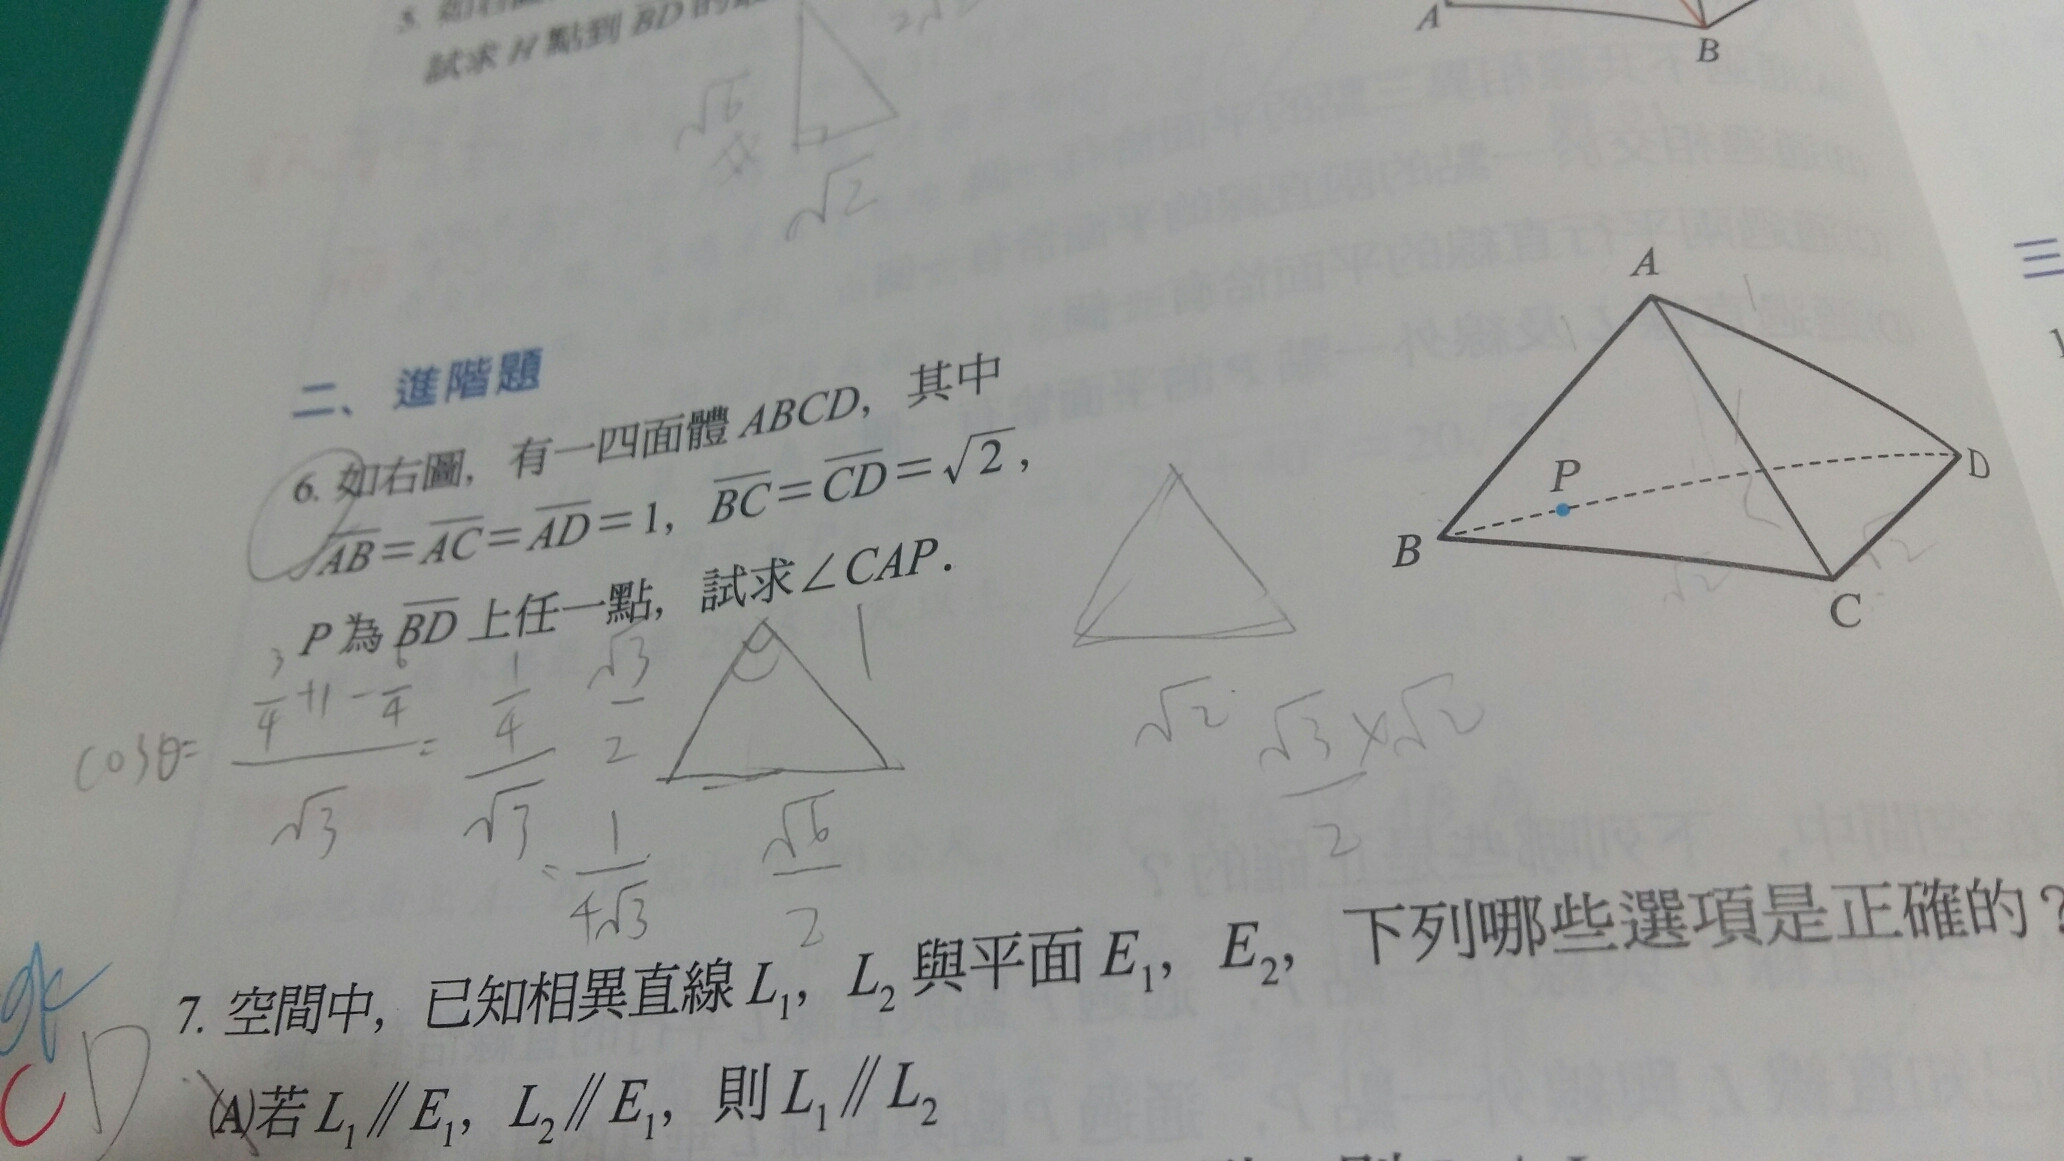 試求 H 點到 BD 的
√6
√2
A
B
三
二、進階題
6. 如右圖，有一四面體 ABCD，其中
AB=AC=AD=1，BC=CD=√2，
P 為 BD 上任一點，試求∠CAP.
A
1
1
P
B
C
D
√2
√2
cosθ= (3/4+1-6/4)/√3 = (1/4)/√3
= 1/4√3
√3/2
1
√6/2
√2
√3×√2/2
7. 空間中，已知相異直線 L₁，L₂ 與平面 E₁，E₂，下列哪些選項是正確的？
CD
(A)若 L₁∥E₁，L₂∥E₁，則 L₁∥L₂